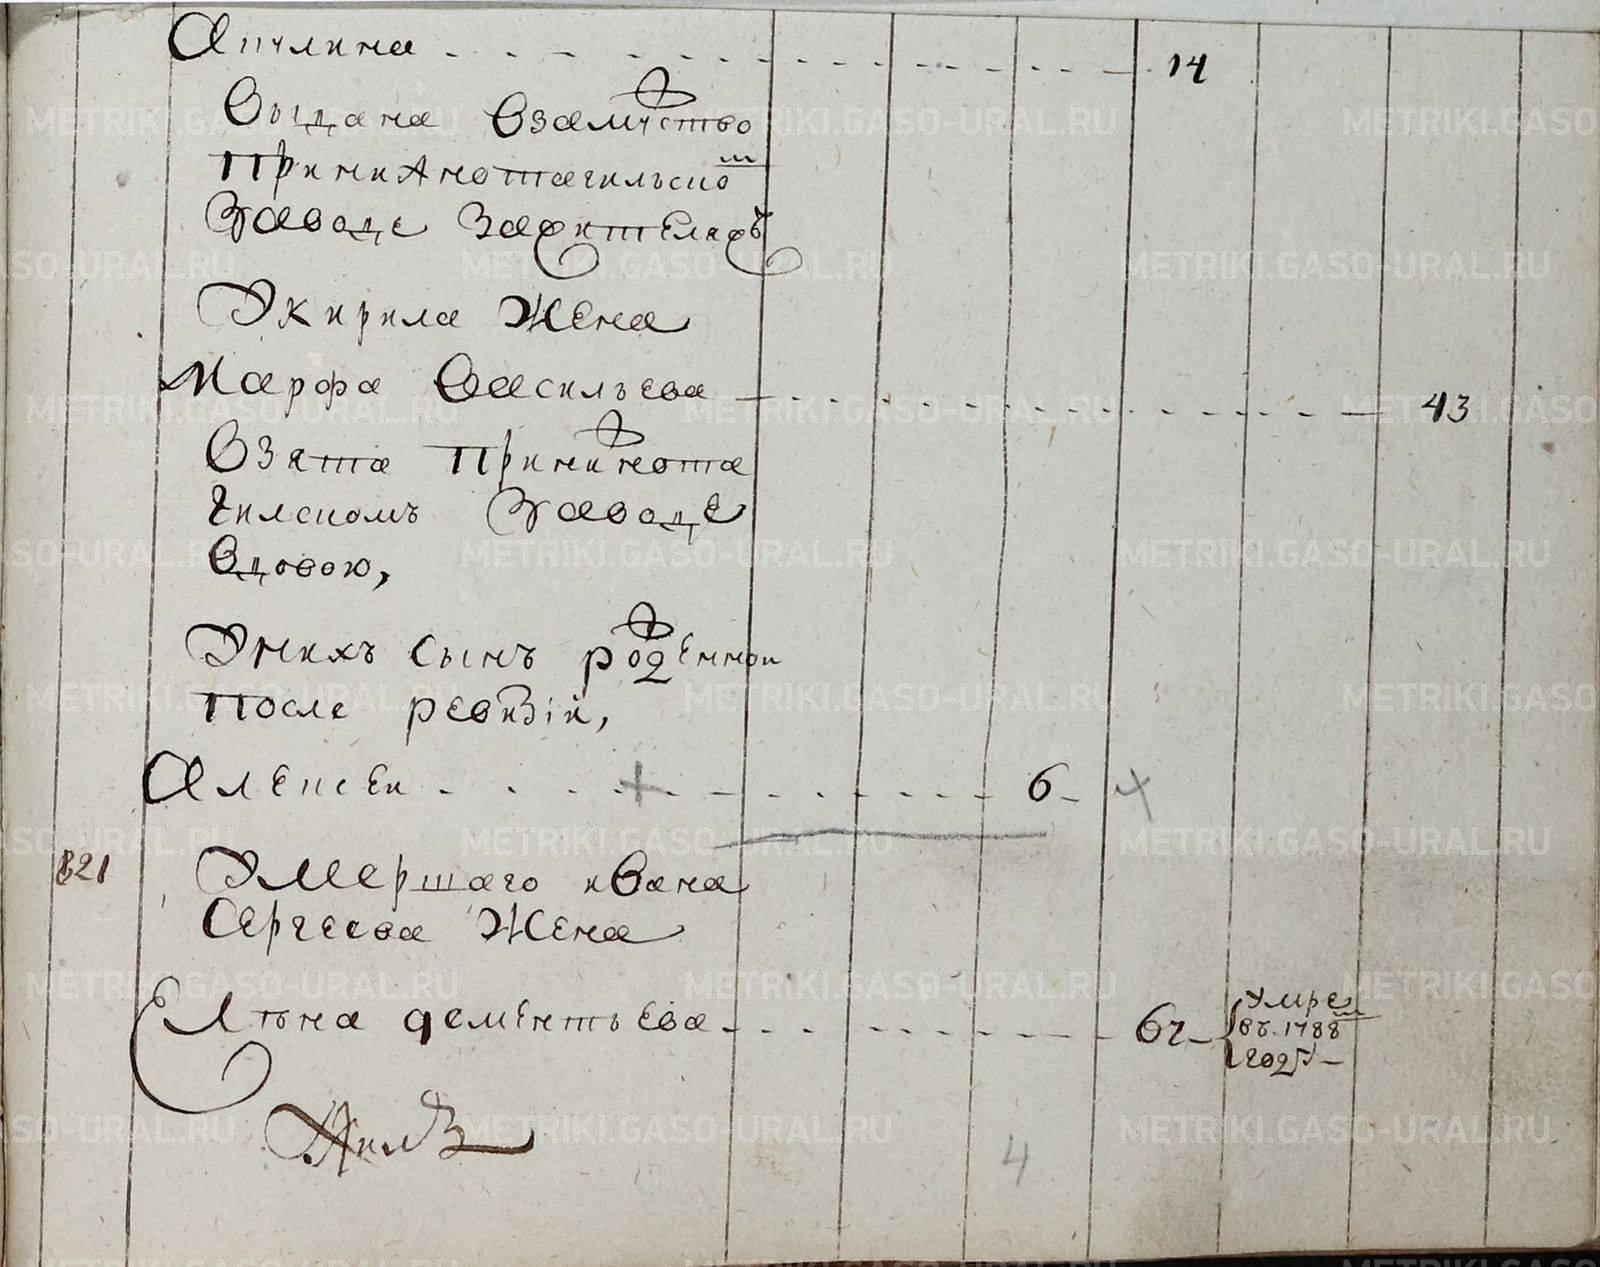 Акулина 14
Выдана взамужство
при нижнотагильско
заводе зажителядъ
Укирила жена
Марфа Васильева 43
Взята принижнота
гилскомъ заводе
вдовою,
Унихъ сынъ рожденнои
после ревизіи,
Алексеи 6
821 Умершаго ивана
Сергеева жена
Елѣна дементьева 62
умре
въ 1788
годѣ
4
METRIKI.GASO-URAL.RU